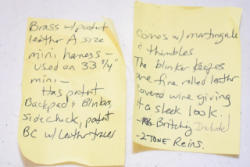 Brass w/patent
leather A size
mini harness -
used on 33 3/4"
mini -
Has patent
Backpad & Blinkers,
sidecheck, patent
BC w/Leather traces
Comes w/ martingale
& thimbles
The blinker keepers
are fine rolled leather
over wire giving
it a sleek look.
Britching Included
- 2 TONE Reins.